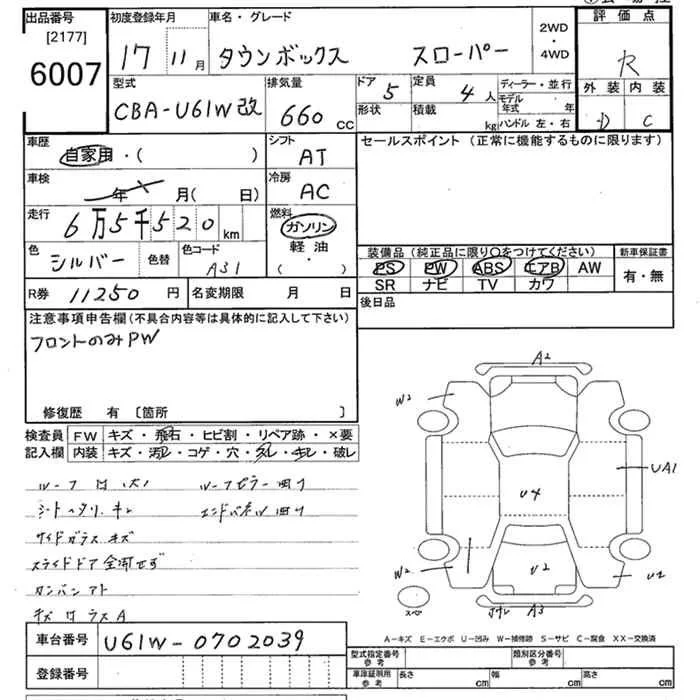 出品番号 初度登録年月 車名・グレード 2WD・4WD 評価点
[2177]
6007 17 11月 タウンボックス スローパー R
型式 排気量 ドア 定員 ディーラー・並行 外装 内装
CBA-U61W改 660 CC 5 4人 モデル年式 年 D C
形状 積載 kg ハンドル 左・右
車歴 シフト セールスポイント(正常に機能するものに限ります)
自家用・( ) AT
車検 冷房
年 月( 日) AC
走行 燃料
6万5千520km ガソリン
色 色替 色コード 軽油
シルバー A31 ( )
装備品(純正品に限り○をつけてください) 新車保証書
PS PW ABS エアB AW 有・無
SR ナビ TV カワ
R券 11250円 名変期限 月 日 後日品
注意事項申告欄(不具合内容等は具体的に記入して下さい)
フロントのみPW
修復歴 有 〔箇所 〕
検査員 FW キズ・飛石・ヒビ割・リペア跡・×要
記入欄 内装 キズ・汚レ・コゲ・穴・スレ・キレ・破レ
A2
W2
UA1
U4
W2 U2 U2
A3
サイドガラス キズ
スライドドア 全閉せず
A−キズ E−エクボ U−凹み W−補修跡 S−サビ C−腐食 XX−交換済
車台番号 U61W-0702039
型式指定番号 参考 類別区分番号 参考
登録番号 車庫証明用 参考 長さ cm 幅 cm 高さ cm